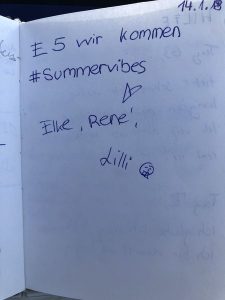 14.1.18
E 5 wir kommen
#Summervibes
Elke, René,
Lilli